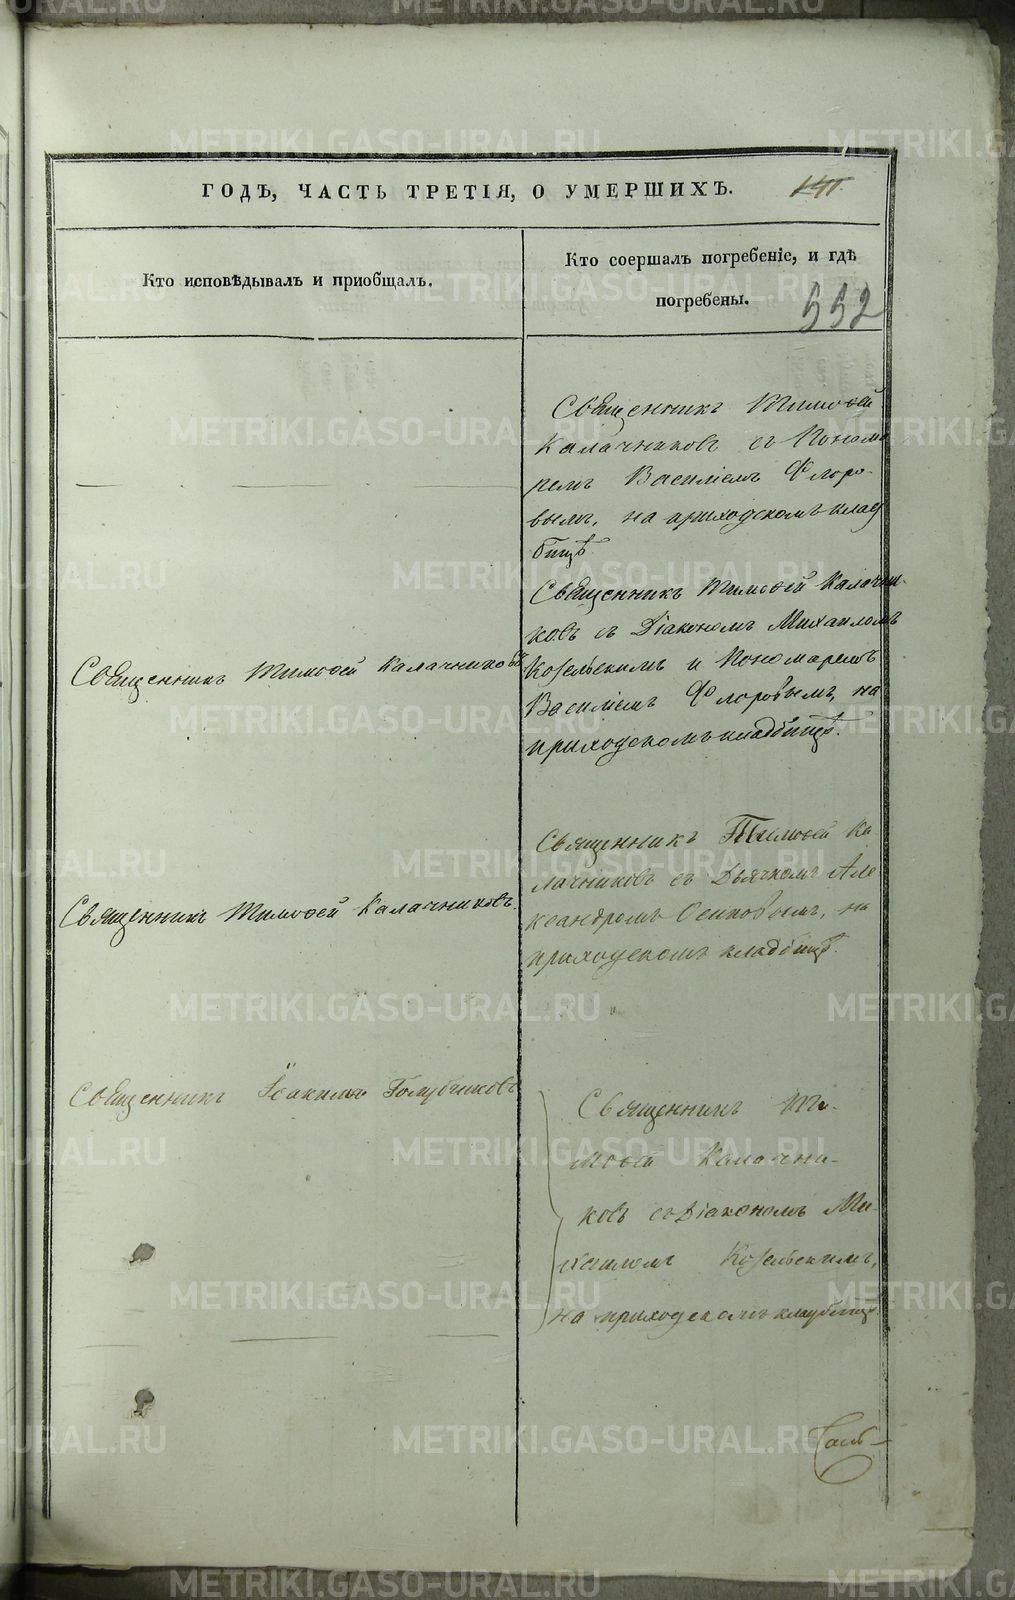 ГОДѢ, ЧАСТЬ ТРЕТІЯ, О УМЕРШИХЪ. 141.
Кто исповѣдывалъ и приобщалъ.
Кто соершалъ погребеніе, и гдѣ
погребены.
552
Священникъ Тимоѳей
Калачниковъ съ Понома
ремъ Василіемъ Флоро-
вымъ, на приходскомъ клад
бищѣ.
Священникъ Тимоѳей Калачниковъ
Священникъ Тимоѳей Калачни-
ковъ съ Діакономъ Михаиломъ
Козельскимъ и Пономаремъ
Василіемъ Флоровымъ, на
приходскомъ кладбищѣ.
Священникъ Тимоѳей Калачниковъ.
Священникъ Тимоѳей Ка
лачниковъ съ Дьячкомъ Але
ксандромъ Осиповымъ, на
приходскомъ кладбищѣ.
Священникъ Іоакимъ Голубчиковъ
Священникъ Ти-
моѳей Калачни-
ковъ съ Діакономъ Ми-
хаиломъ Козельскимъ,
на приходскомъ кладбищѣ
METRIKI.GASO-URAL.RU